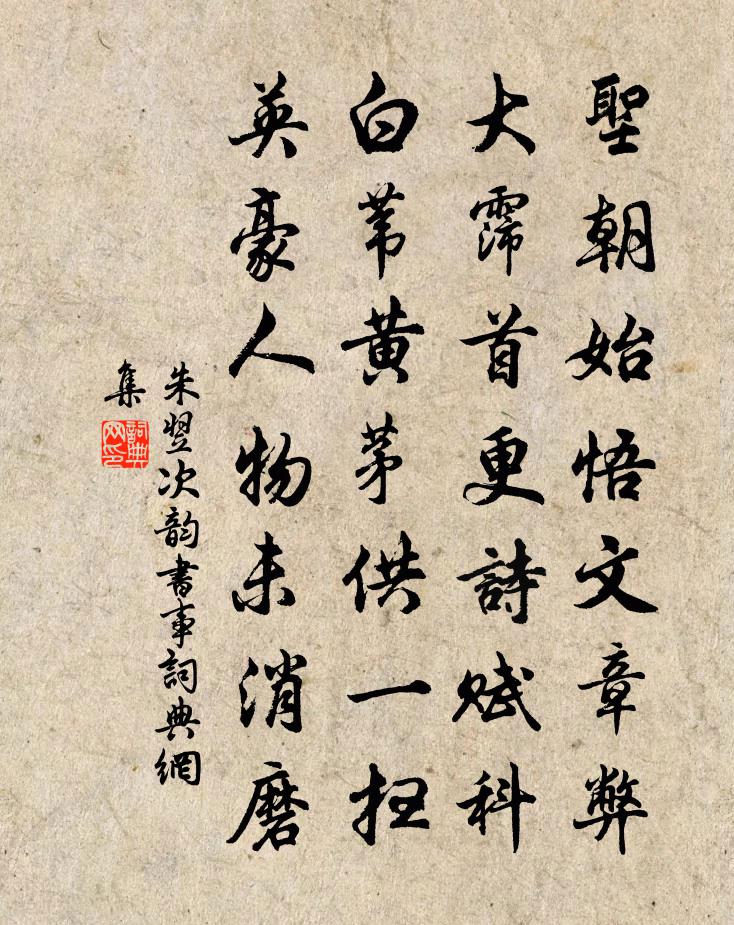 聖朝始悟文章弊
大霈首更詩賦科
白葦黃茅供一抂
英豪人物未消磨
朱翌次韵書事詞典網
集
詞典网印